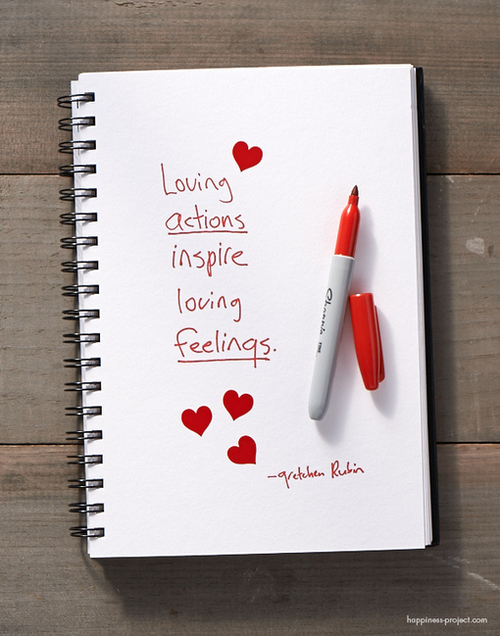 Loving
actions
inspire
loving
feelings.
-gretchen Rubin
Sharpie
happiness-project.com